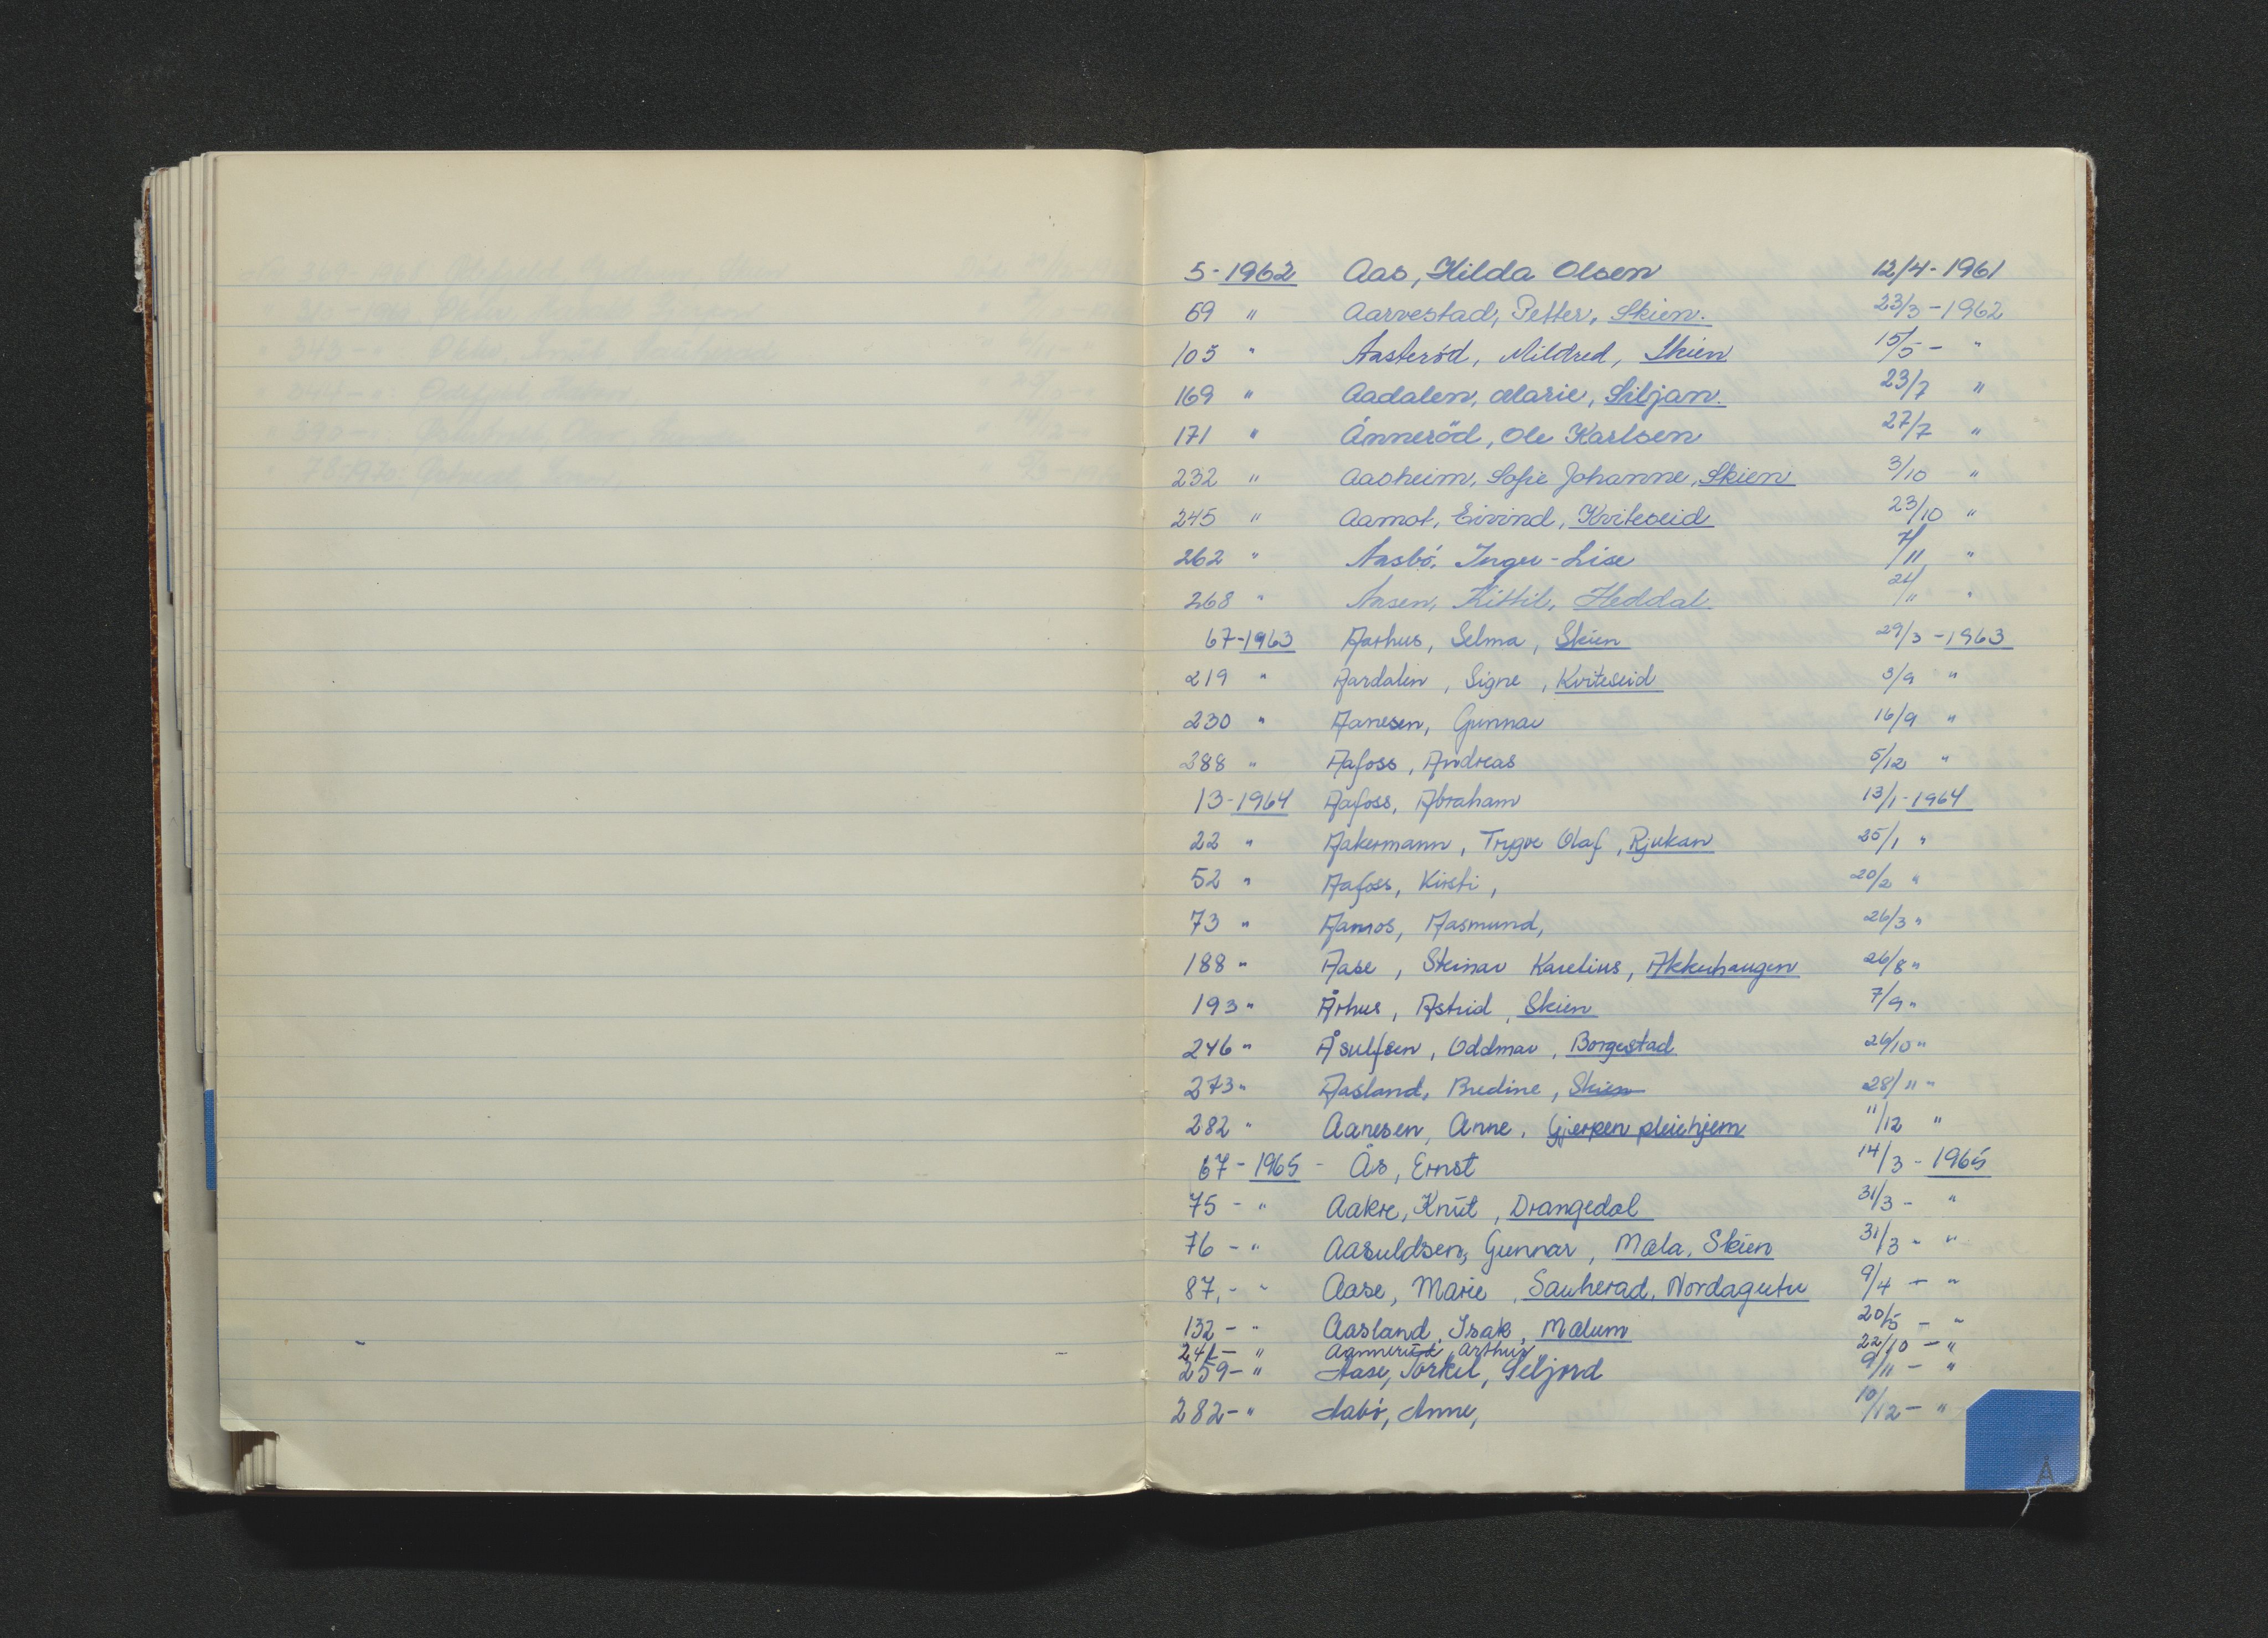 5-1962 Aas, Hilda Olsen 12/4-1961
69 " Aarvestad, Petter, Skien. 23/3-1962
105 " Aasteród, Mildred, Skien 15/5- "
169 " Aadalen, Marie, Siljan. 23/7 "
171 " Ånneröd, Ole Karlsen 27/7 "
232 " Aasheim, Sofie Johanne, Skien 3/10 "
245 " Aamot, Eivind, Kviteseid 23/10 "
262 " Aasbó, Inger-Lise 7/11 "
268 " Aasen, Kittil, Heddal 24/11 "
67-1963 Aarhus, Selma, Skien 29/3-1963
219 " Aardalen, Signe, Kviteseid 3/9 "
230 " Aanesen, Gunnar 16/9 "
288 " Aafoss, Andreas 5/12 "
13-1964 Aafoss, Abraham 13/1-1964
22 " Aakermann, Trygve Olaf, Rjukan 25/1 "
52 " Aafoss, Kirsti, 20/2 "
73 " Aamos, Aasmund, 26/3 "
188 " Aase, Steinar Karelius, Akkerhaugen 26/8 "
193 " Århus, Astrid, Skien 7/9 "
246 " Åsulfsen, Oddmar, Borgestad 26/10 "
273 " Aasland, Bredine, Skien 28/11 "
282 " Aanesen, Anne, Gjerpen pleiehjem 11/12 "
67-1965 - Ås, Ernst 14/3-1965
75 - " Aakre, Knut, Drangedal 31/3 - "
76 - " Aasuldsen, Gunnar, Mæla, Skien 31/3 - "
87,- " Aase, Marie, Sauherad, Nordagutu 9/4 - "
132 - " Aasland, Isak, Mælum 20/5 - "
- " Arthur 22/10 - "
259- " Aase, Torkel, Seljord 9/11 - "
282- " Aabó, Anne, 10/12 - "
Å